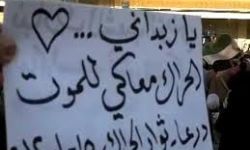 يا زبداني ...♡
الحراك معاكي للموت
درعا - ثوار الحراك